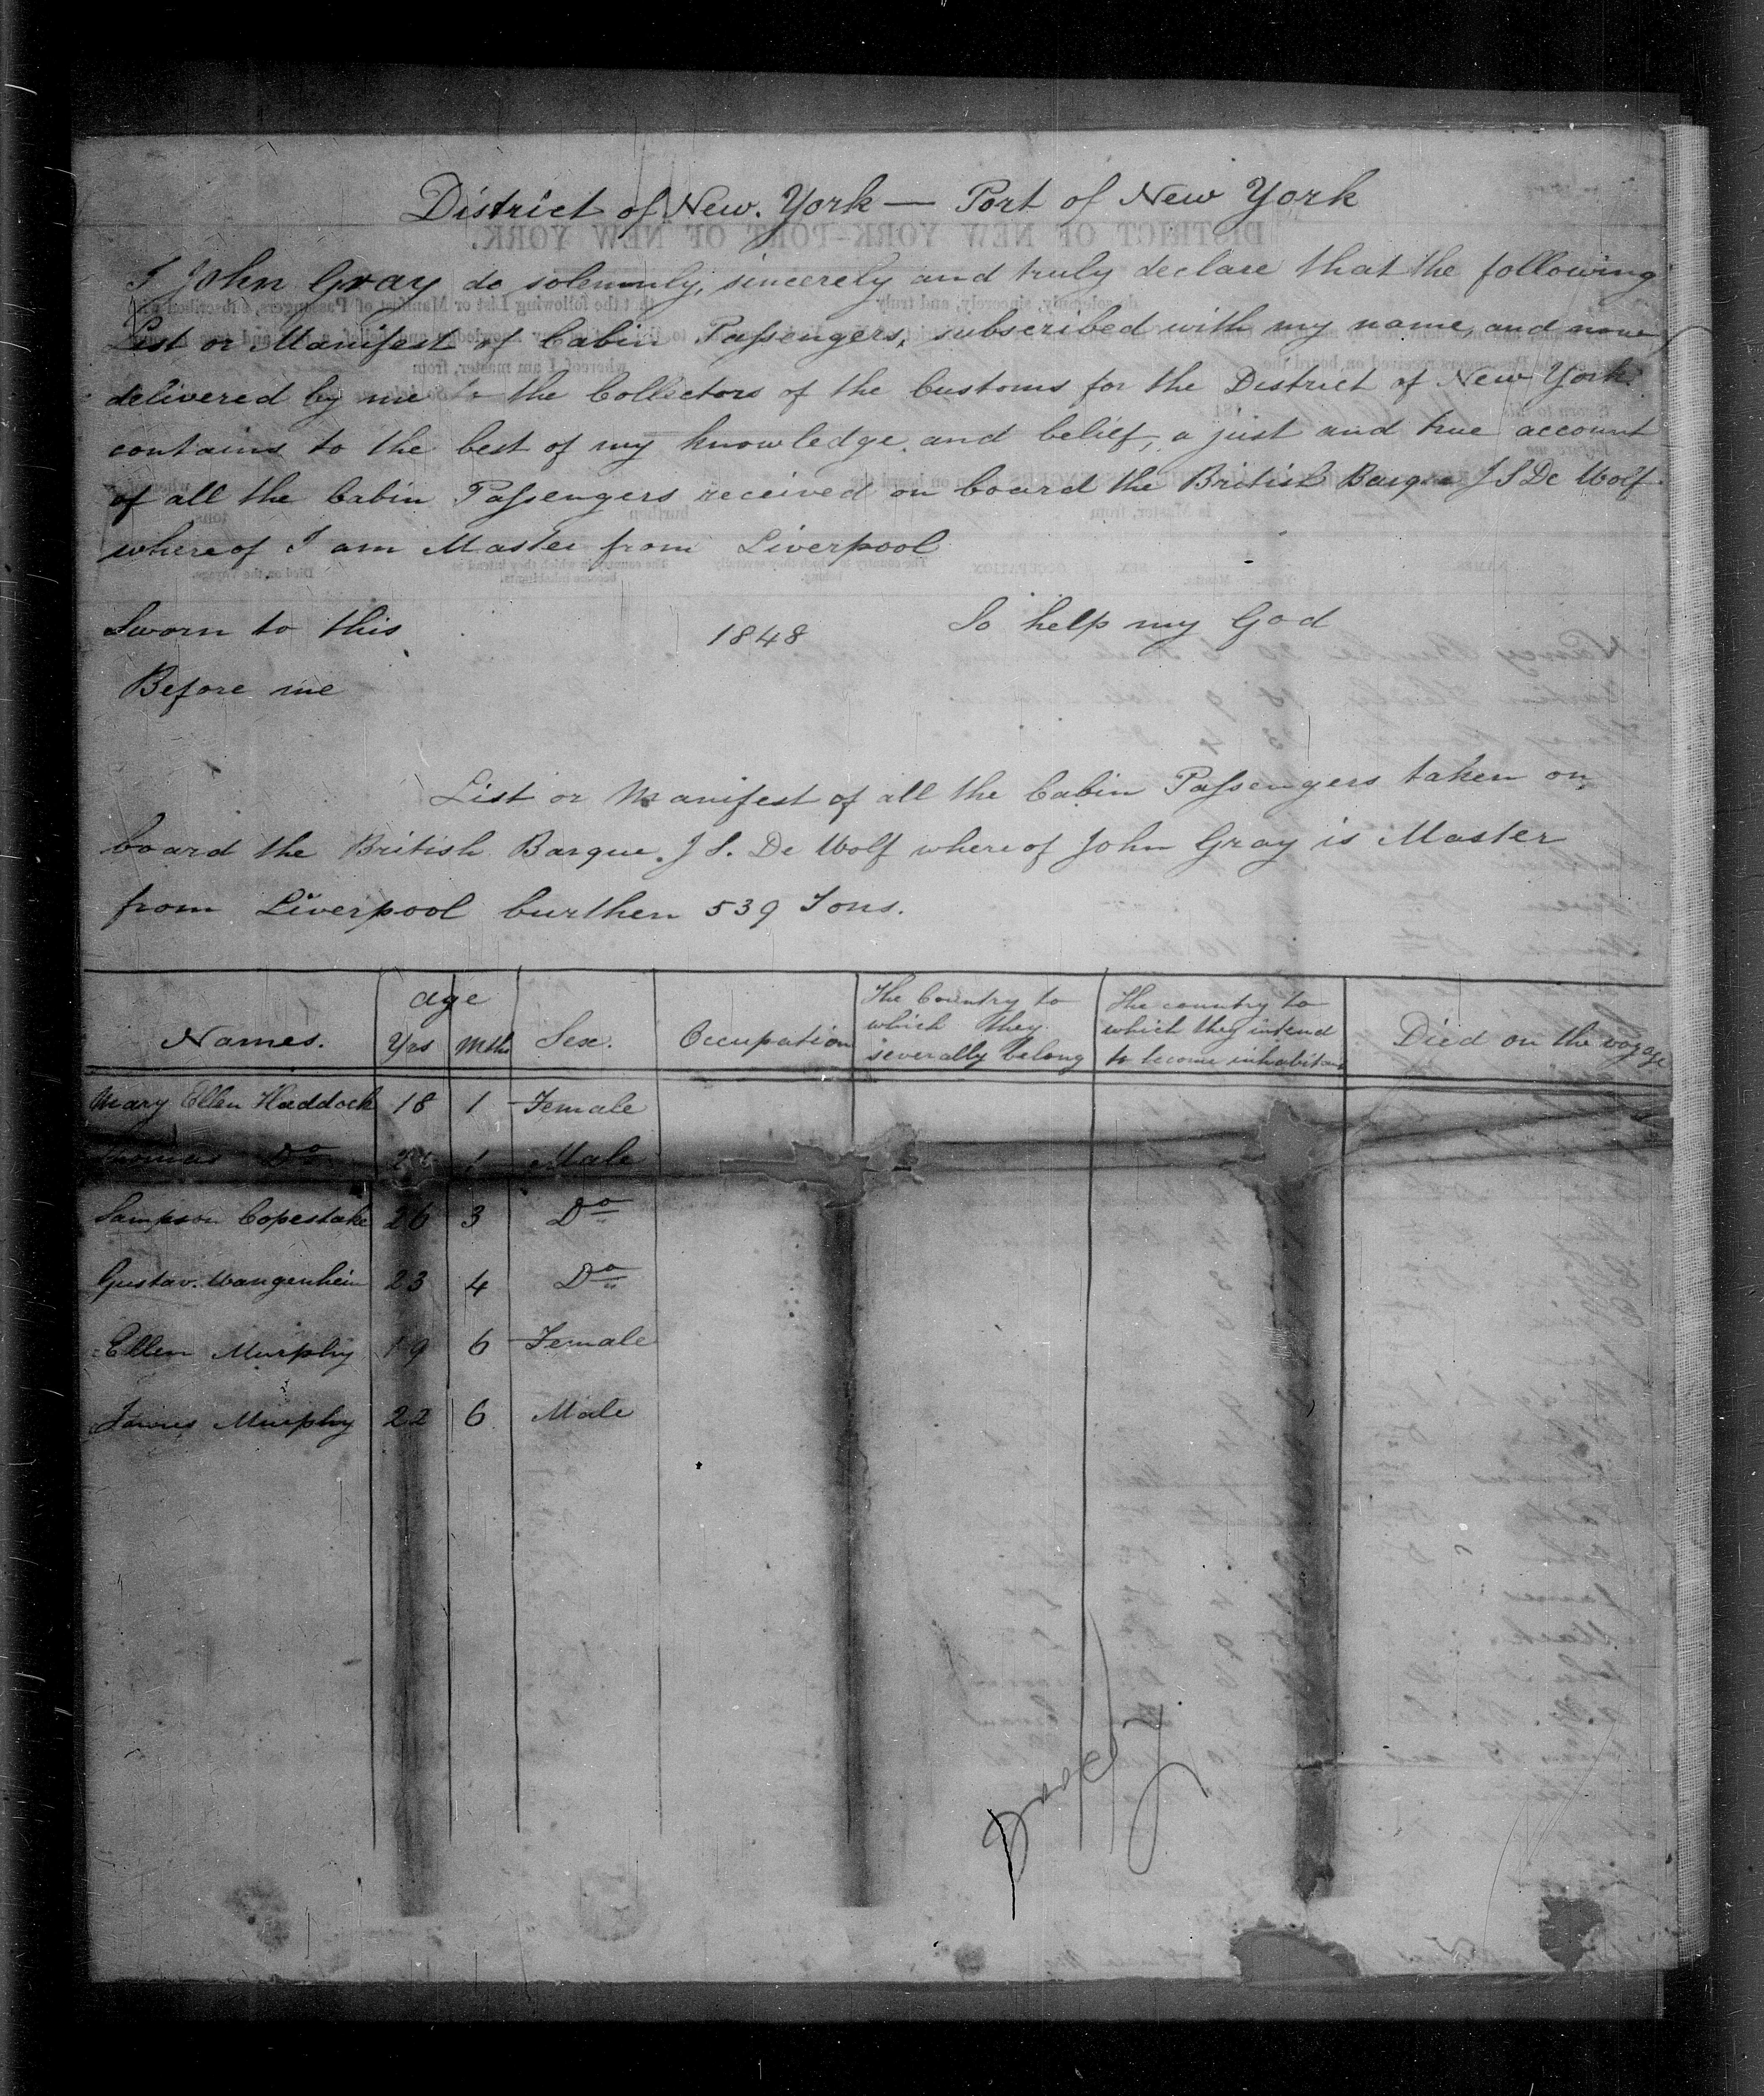 District of New. York — Port of New York
I John Gray do solemnly, sincerely and truly declare that the following
List or Manifest of Cabin Passengers, subscribed with my name, and now
delivered by me to the Collectors of the Customs for the District of New York.
contains to the best of my knowledge and belief, a just and true account
of all the Cabin Passengers received on board the British Barque J S De Wolf
whereof I am Master from Liverpool
Sworn to this 1848 So help my God
Before me
List or Manifest of all the Cabin Passengers taken on
board the British Barque. J S. De Wolf whereof John Gray is Master
from Liverpool burthen 539 Tons.
Names. Age Yrs Mths Sex. Occupation The Country to which they severally belong The country to which they intend to become inhabitants Died on the voyage
Mary Ellen Haddock 18 1 Female
Thomas Do 1 Male
Sampson Copestake 26 3 Do
Gustav. Wangenheim 23 4 Do
Ellen Murphy 19 6 Female
James Murphy 22 6 Male